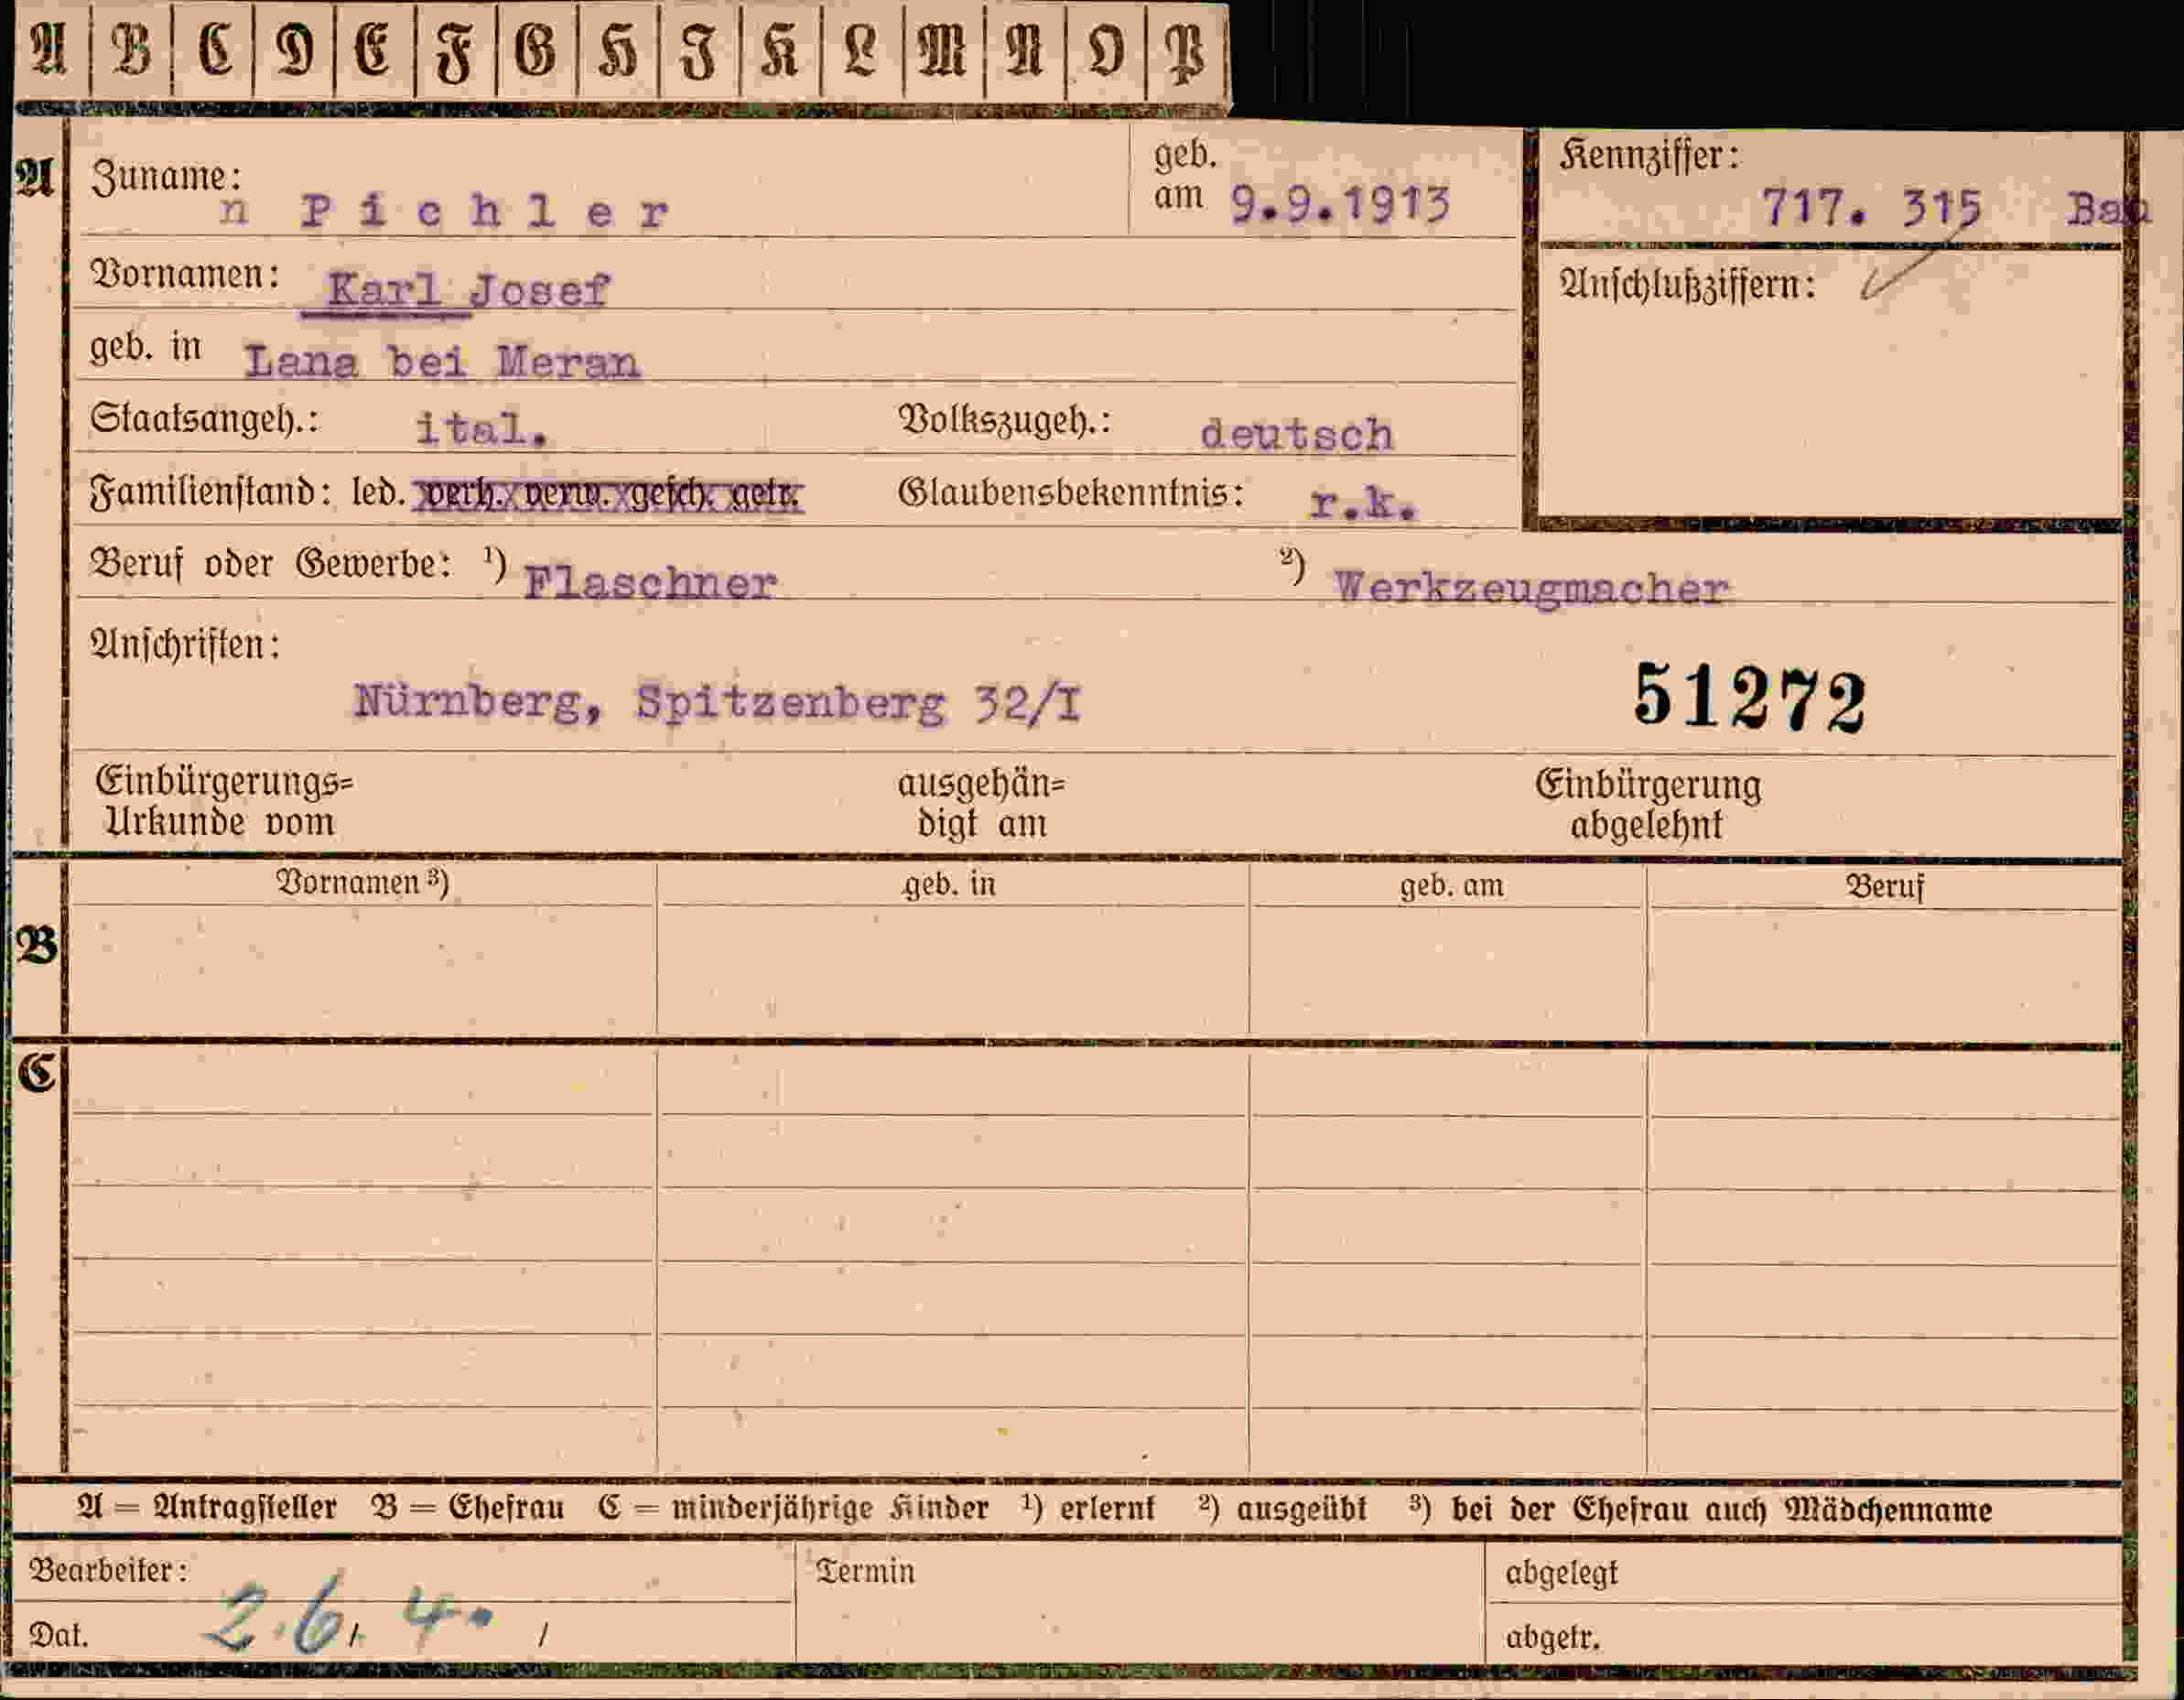 A B C D E F G H I K L M N O P
A
Zuname: n Pichler
geb. am 9.9.1913
Kennziffer: 717. 315 Bau
Vornamen: Karl Josef
Anschlußziffern:
geb. in Lana bei Meran
Staatsangeh.: ital. Volkszugeh.: deutsch
Familienstand: led. verh. verw. gesch. getr. Glaubensbekenntnis: r.k.
Beruf oder Gewerbe: ¹) Flaschner ²) Werkzeugmacher
Anschriften:
Nürnberg, Spitzenberg 32/I 51272
Einbürgerungs= ausgehän= Einbürgerung
Urkunde vom digt am abgelehnt
Vornamen ³) geb. in geb. am Beruf
B
C
A = Antragsteller B = Ehefrau C = minderjährige Kinder ¹) erlernt ²) ausgeübt ³) bei der Ehefrau auch Mädchenname
Bearbeiter: Termin abgelegt
Dat. abgetr.